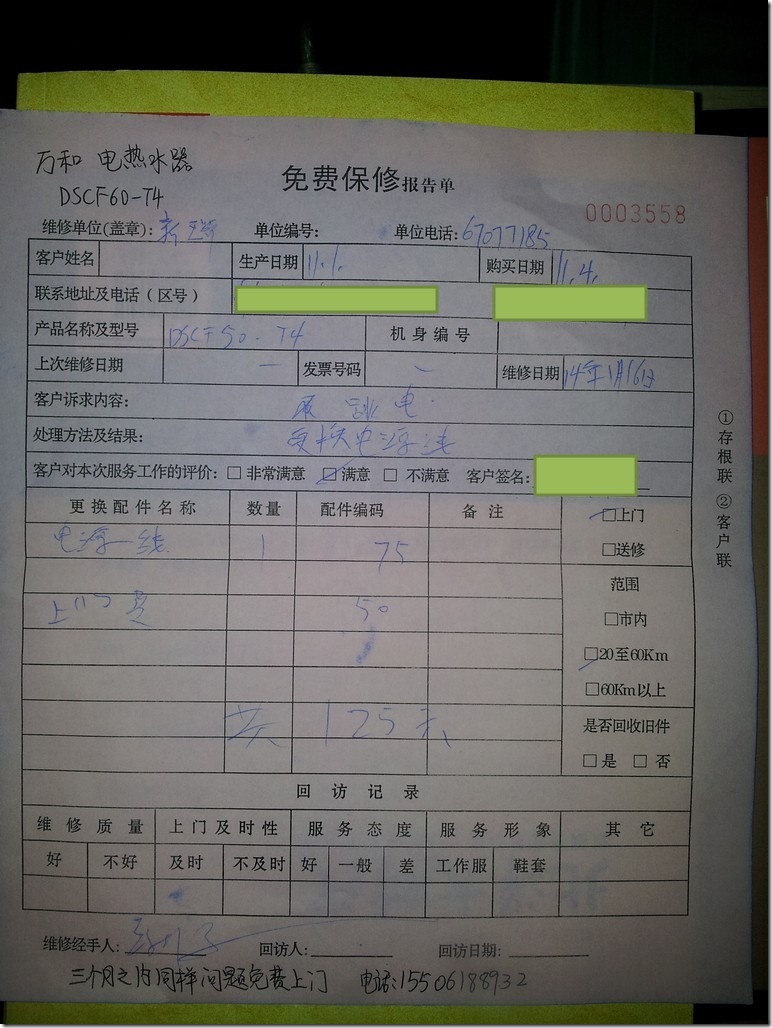 万和 电热水器
DSCF60-T4
免费保修报告单
0003558
维修单位(盖章): 单位编号: 单位电话: 67077185
客户姓名 生产日期 11.1. 购买日期 11.4.
联系地址及电话（区号）
产品名称及型号 DSCF50-T4 机身编号
上次维修日期 — 发票号码 — 维修日期 14年1月16日
客户诉求内容: 跳电.
处理方法及结果: 更换电源线
客户对本次服务工作的评价: □ 非常满意 ☑ 满意 □ 不满意 客户签名:
更换配件名称 数量 配件编码 备注 ☑上门
电源线 1 75 □送修
范围
上门费 50 □市内
☑20至60Km
□60Km以上
共 125元 是否回收旧件
□是 □否
回访记录
维修质量 上门及时性 服务态度 服务形象 其它
好 不好 及时 不及时 好 一般 差 工作服 鞋套
维修经手人: 回访人: 回访日期:
三个月之内同样问题免费上门 电话:15506188932
①存根联 ②客户联